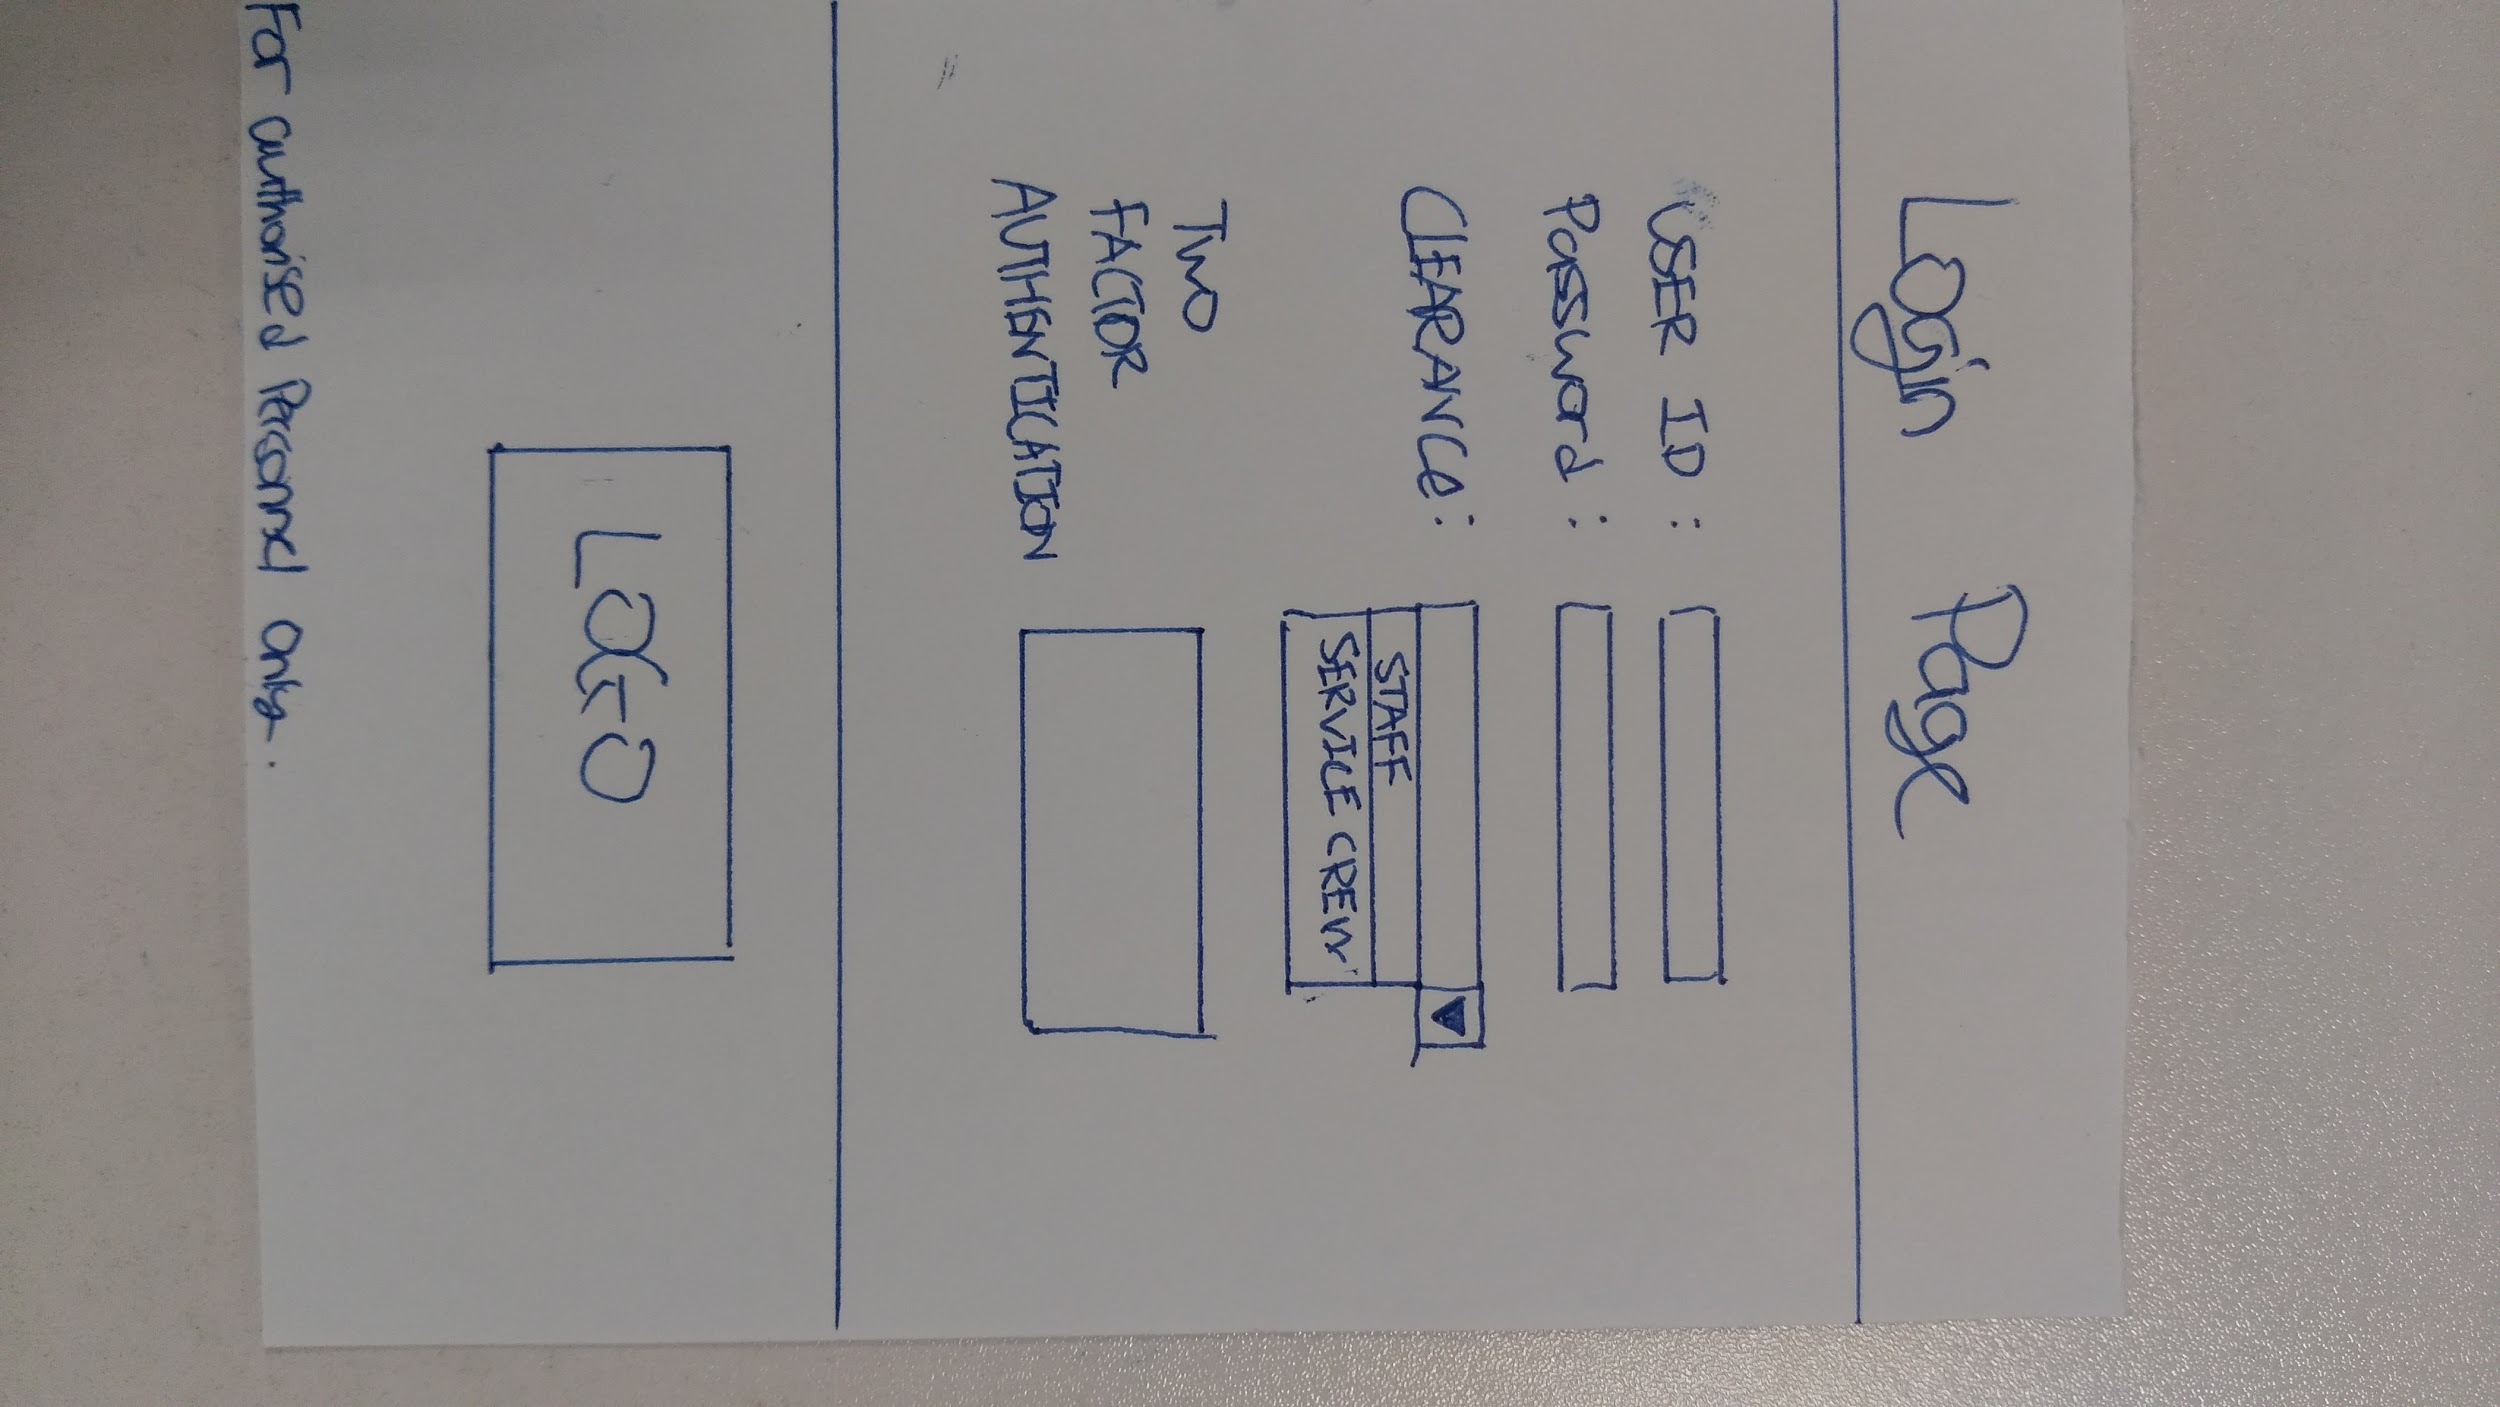 Login Page
USER ID :
Password :
CLEARANCe:
STAFF
SERVICE CREW
TWO
FACTOR
AUTHENTICATION
LOGO
For authorised Personnel only.